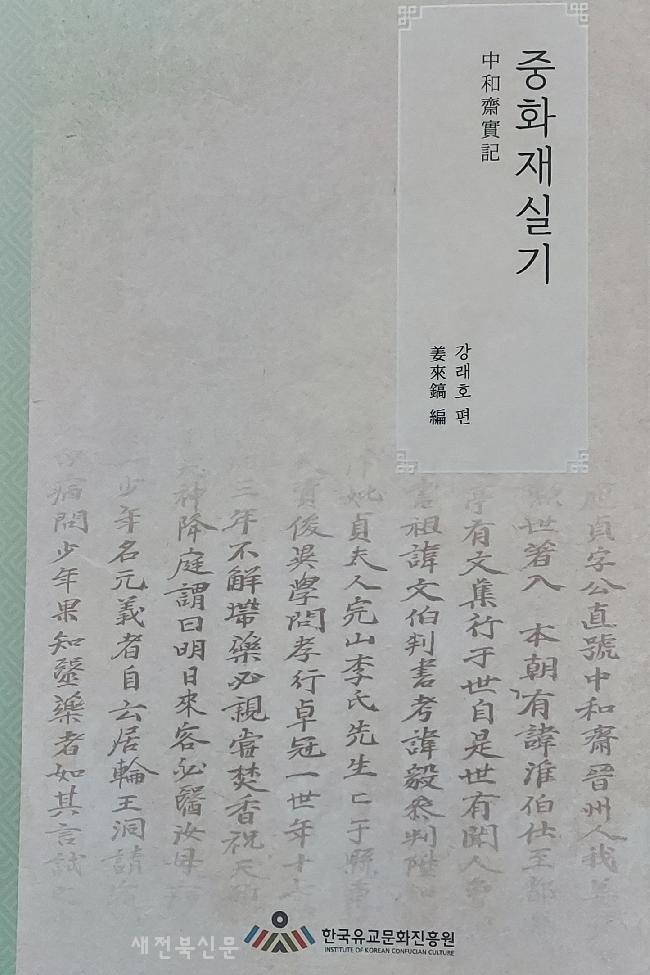 중화재실기
中和齋實記
강래호 편
姜來鎬 編
貞字公直號中和齋晉州人我
世著入 本朝有諱淮伯仕至都
亭有文集行于世自是世有聞人
祖諱文伯判書考諱毅參判
妣貞夫人完山李氏先生 于縣東
質俊異學問孝行卓冠一世年十
三年不解帶藥必親嘗焚香祝天
神降庭謂曰明日來客必醫汝母
一少年名元義者自云居輪王洞請
病問少年果知醫藥者如其言試
새전북신문
한국유교문화진흥원
INSTITUTE OF KOREAN CONFUCIAN CULTURE